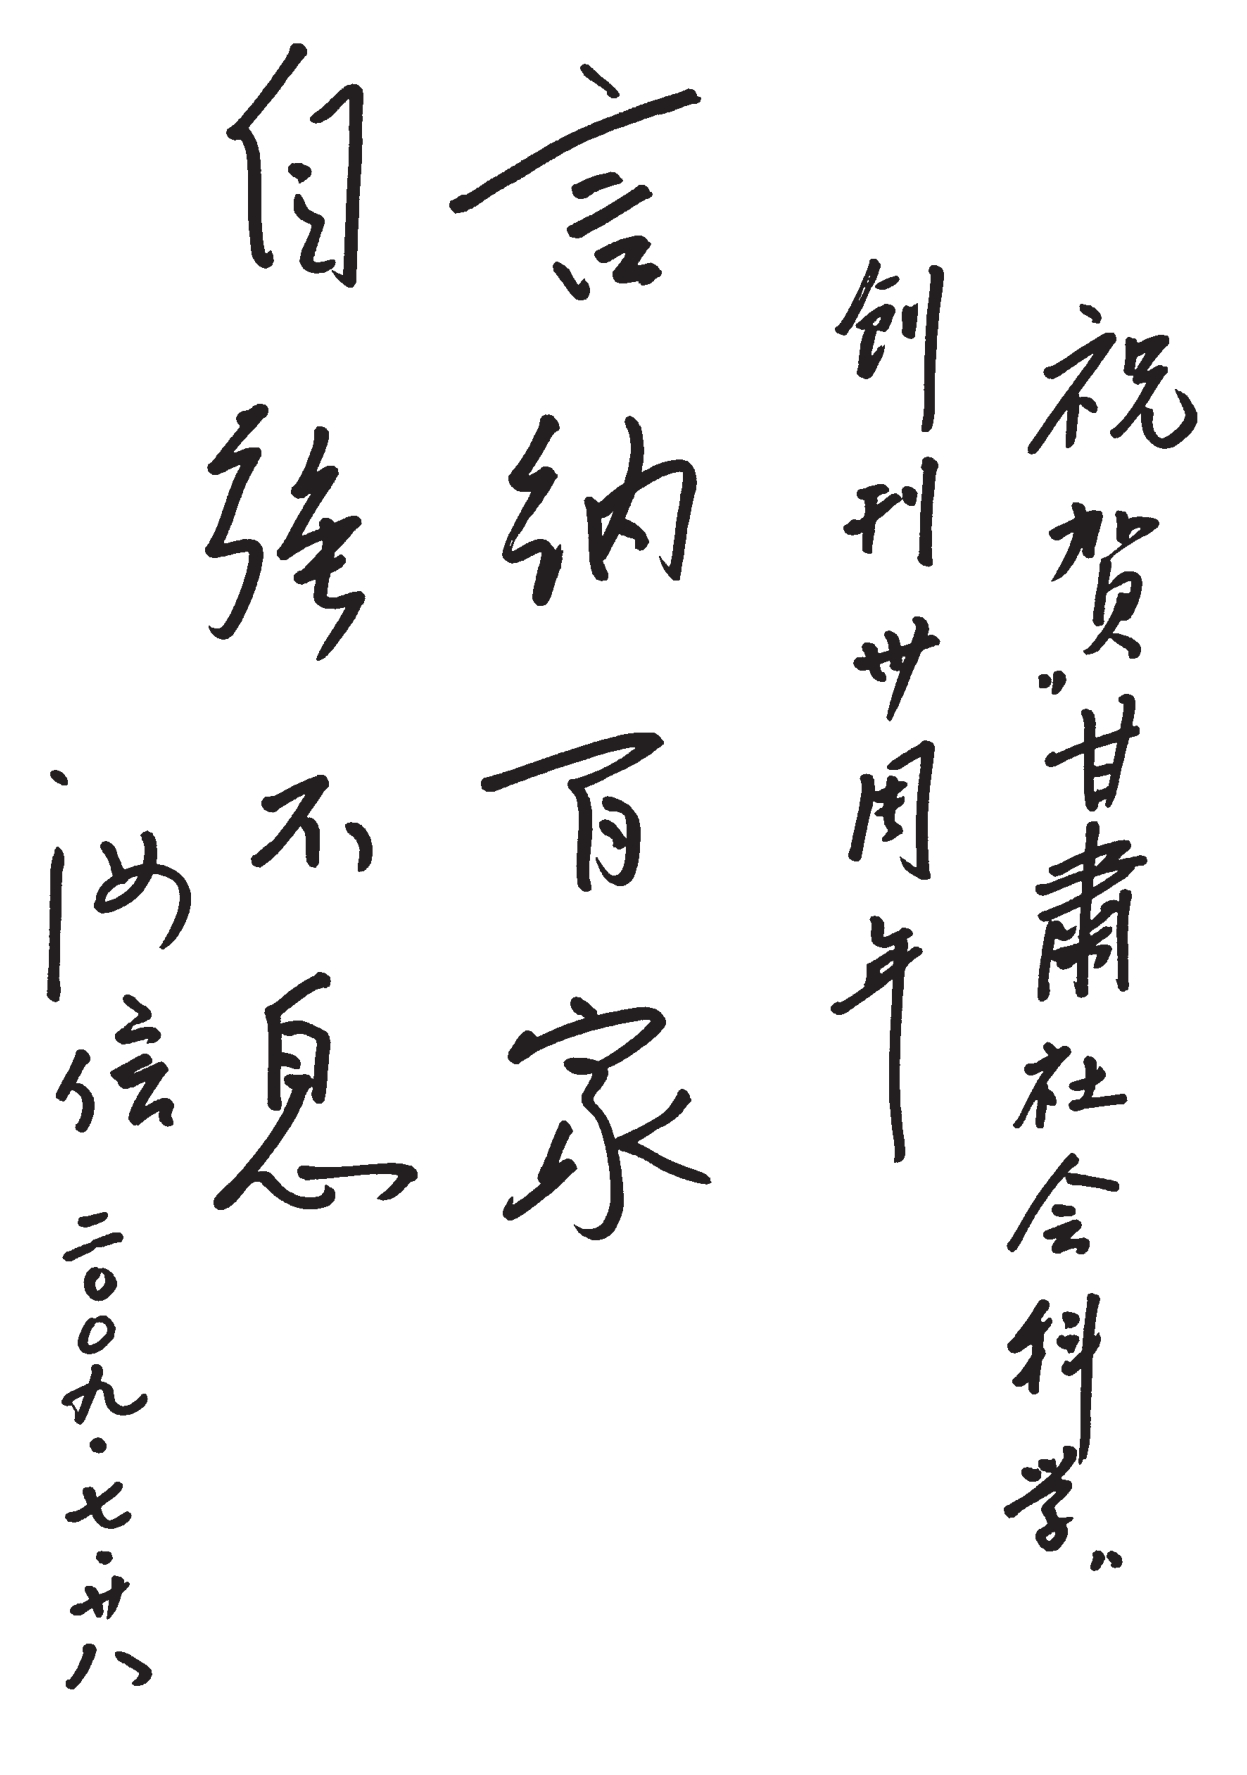 祝贺"甘肃社会科学"
创刊卅周年
言纳百家
自强不息
汝信 二〇〇九·七·廿八